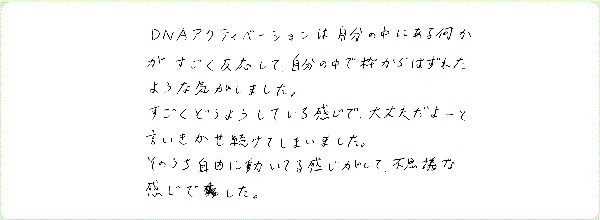 DNAアクティベーションは自分の中にある何か
がすごく反応して、自分の中で枠からはずれた
ような気がしました。
すごくどうようしている感じで、大丈夫だよーと
言いきかせ続けてしまいました。
そのうち自由に動いてる感じがして、不思議な
感じでした。